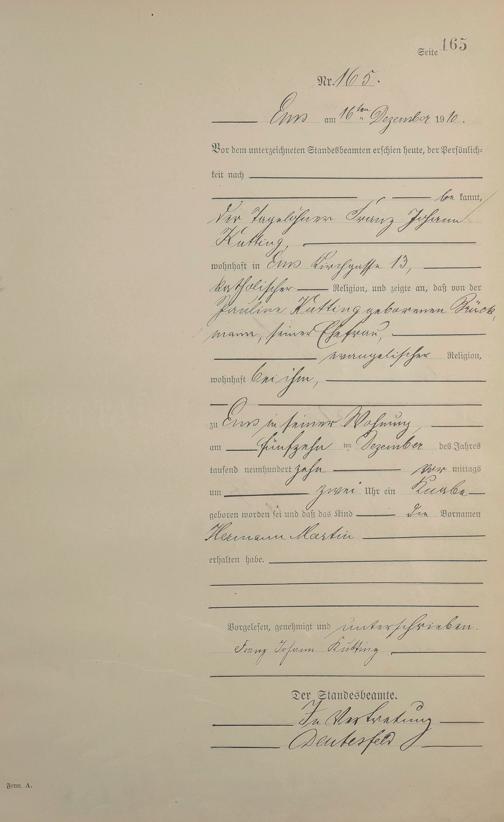 Seite 165
Nr. 165.
Ems am 16ten Dezember 1910.
Vor dem unterzeichneten Standesbeamten erschien heute, der Persönlich-
keit nach
bekannt,
der Tagelöhner Franz Johann
Kutting,
wohnhaft in Ems Kirchgasse 13,
katholischer Religion, und zeigte an, daß von der
Pauline Kutting geborenen Brück
mann, seiner Ehefrau,
evangelischer Religion,
wohnhaft bei ihm,
zu Ems in seiner Wohnung
am fünfzehn im Dezember des Jahres
tausend neunhundert zehn vor mittags
um zwei Uhr ein Knabe
geboren worden sei und daß das Kind die Vornamen
Hermann Martin
erhalten habe.
Vorgelesen, genehmigt und unterschrieben.
Franz Johann Kutting
Der Standesbeamte.
In Vertretung
Form. A.